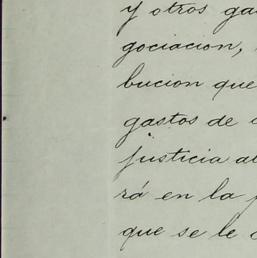 y otros ga
gociacion,
bucion que
gastos de
justicia a
rá en la
que se le